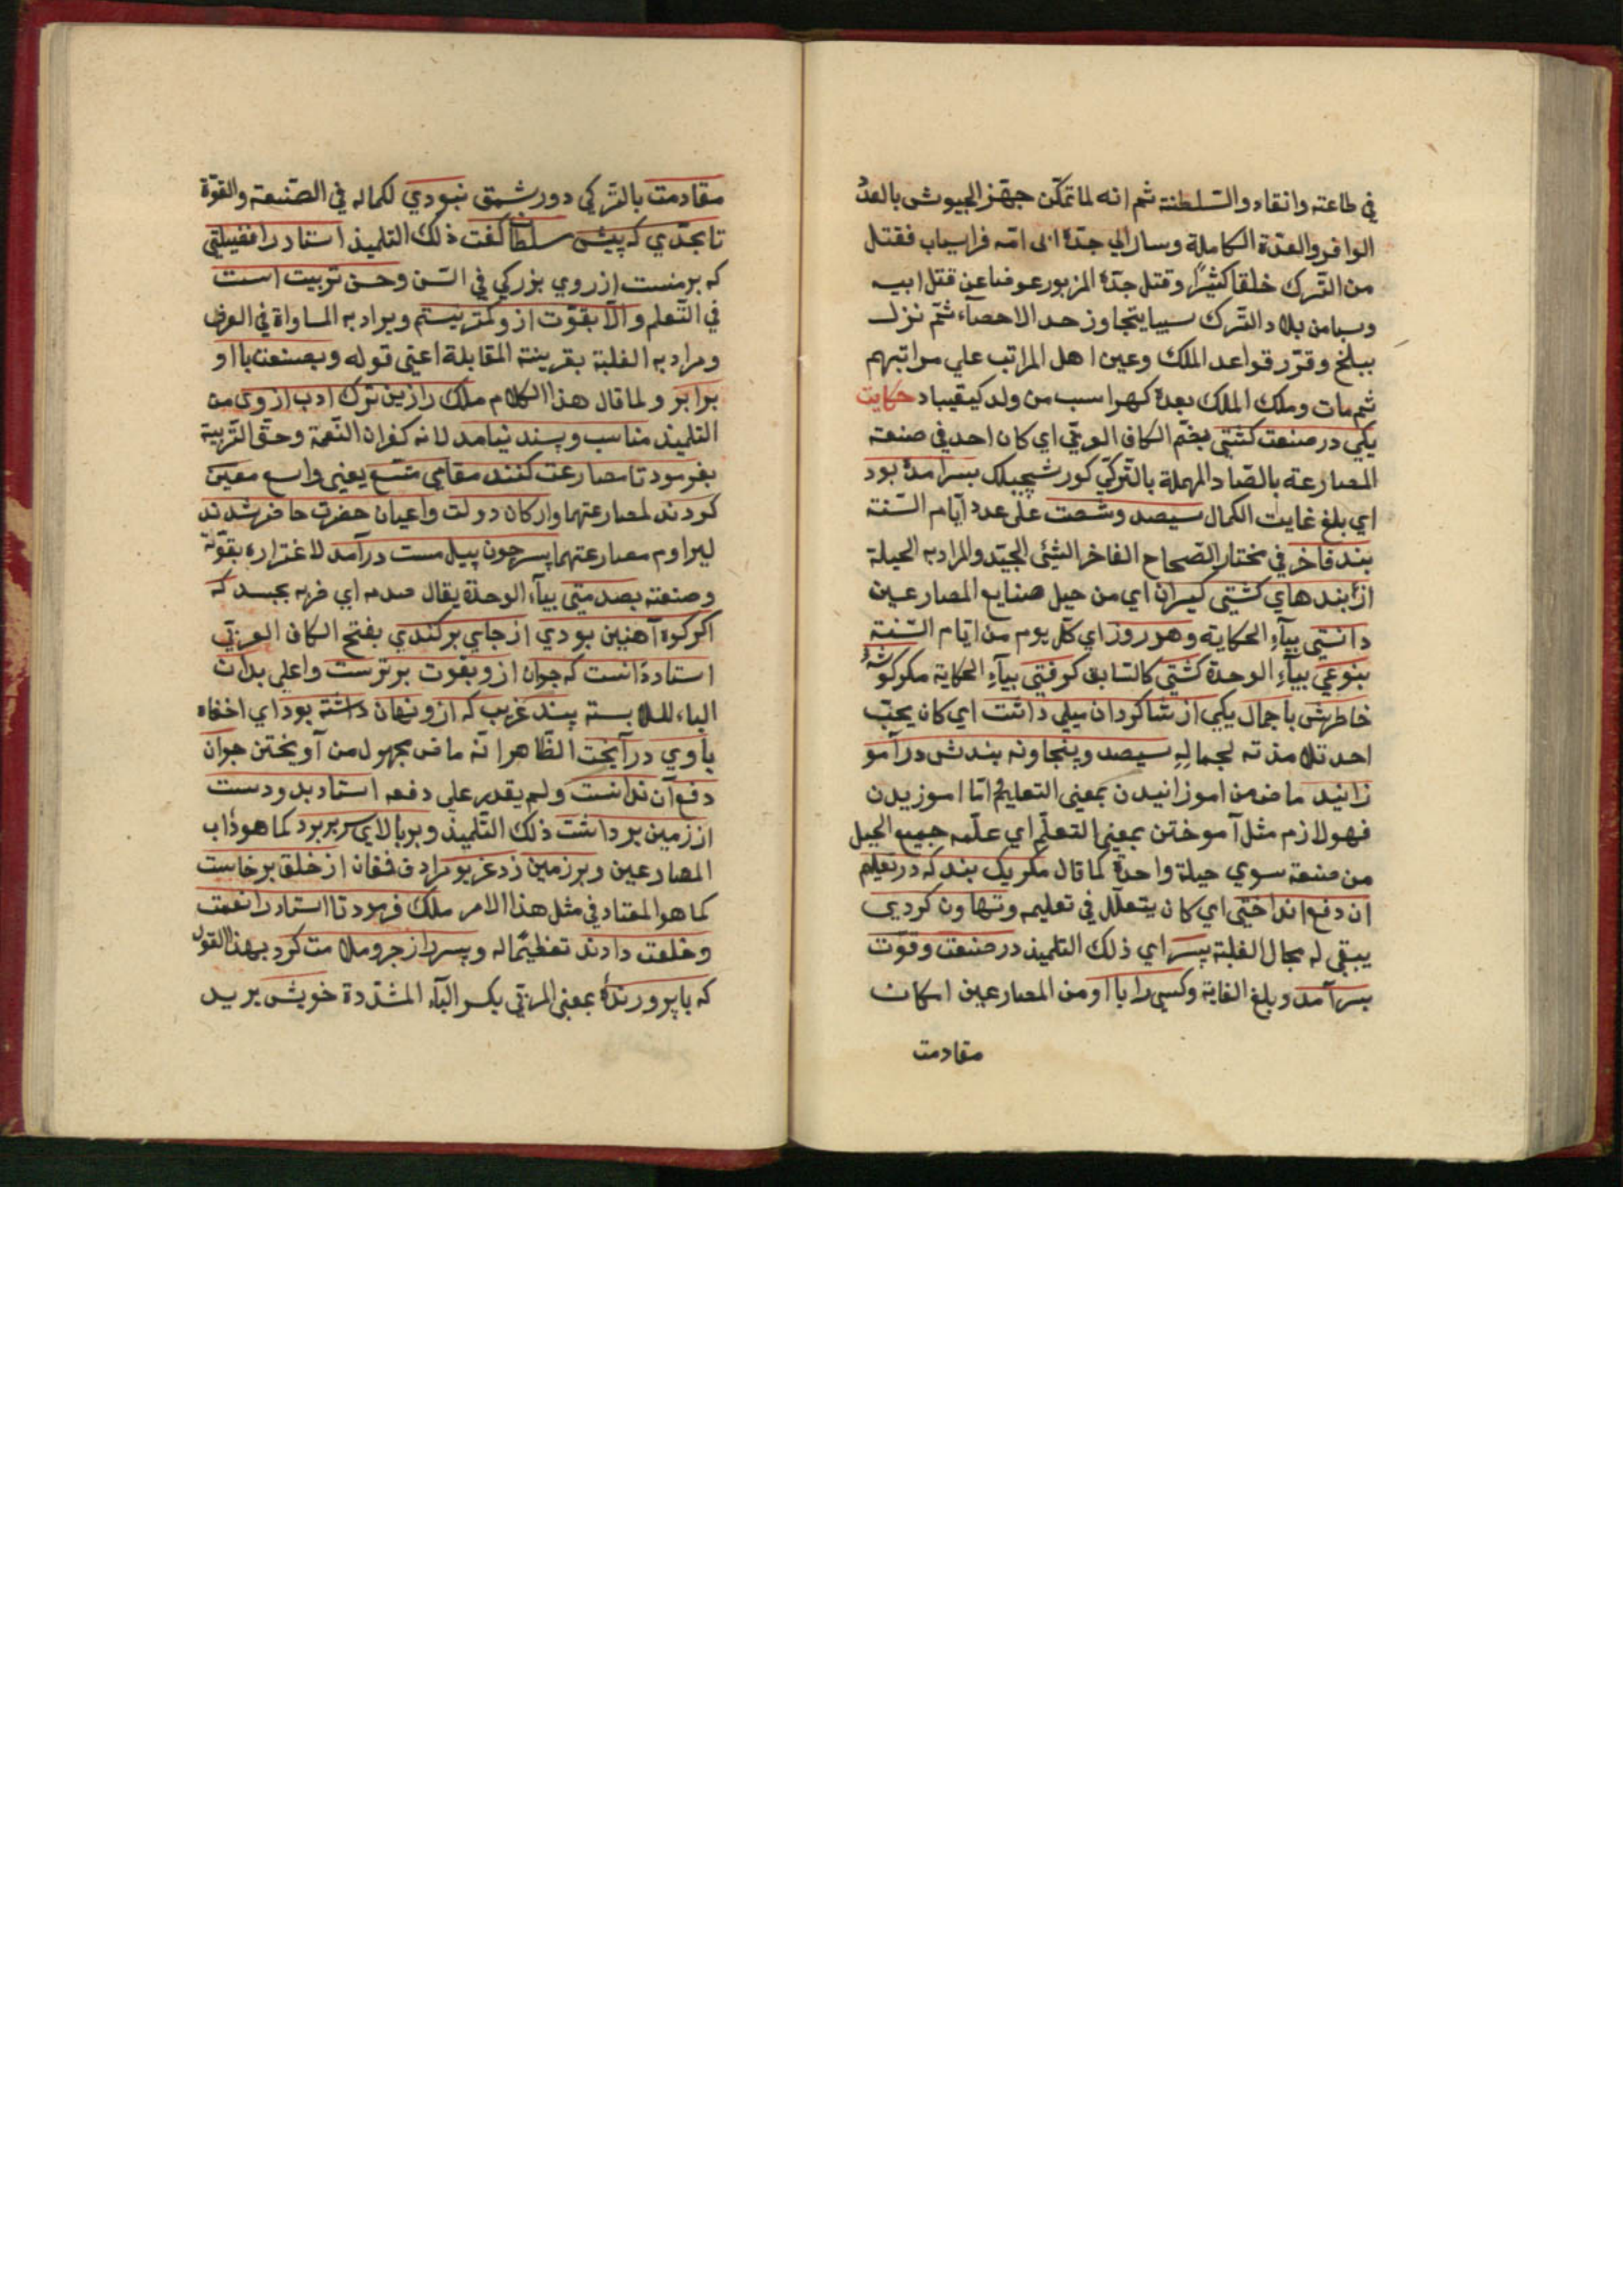 في طاعته وانقاد والسّلطنة ثم انه لما تمكّن جهّز الجيوش بالعدد
الوافر والعدّة الكاملة وسار الي جدّه ابي امّه فراسياب فقتل
من التّرك خلقا كثيرًا وقتل جدّه المزبور عوضا عن قتل ابيه
وسبا من بلاد التّرك سبيا يتجاوز حد الاحصآء ثمّ نزل
ببلخ وقرّر قواعد الملك وعين اهل المراتب علي مراتبهم
ثم مات وملك الملك بعده كهراسب من ولد كيقباد حكايت
يكي در صنعت كشتي بضّم الكاف العربّي اي كان احد في صنعة
المصارعة بالصّاد المهملة بالتّركيّ كورشجيلك بسر امده بود
اي بلغ غايت الكمال سيصد وشصت علي عدد ايّام السّنة
بند فاخر في مختار الصّحاح الفاخر الشئ الجيّد والمراد به الحيلة
از بندهاي كشتي كيران اي من حيل صنايع المصارعين
دانستي بيآء الحكاية وهر روز اي كلّ يوم من ايّام السّنة
بنوعي بيآء الوحدة كشتي كالسّابق كرفتي بيآء الحكاية مكر كوشهٔ
خاطرش با جمال يكي از شاكردان ميلي داشت اي كان يحبّ
احد تلامذته لجماله سيصد وپنجاه ونه بندش در آمو
زانيد ماض من اموزانيدن بمعني التعليم امّا اموزيدن
فهو لازم مثل آموختن بمعني التعلّم اي علّمه جميع الحيل
من صنعة سوي حيلة واحدة كما قال مكر يك بند كه در تعليم
ان دفع انداختي اي كان يتعلّل في تعليمه وتهاون كردي
يبقي له مجال الغلبة پسر اي ذلك التلميذ در صنعت وقوّت
بسر آمد وبلغ الغاية وكسي را با او من المصارعين امكان
مقادمت
مقادمت بالتّركي دورشمق نبودي لكماله في الصّنعة والقوّة
تا بحدّي كه پيش سلطان كفت ذلك التلميذ استاد را فضيلتي
كه بر منست از روي بزركي في السّن وحسن تربيت است
في التّعلم والّا بقوّت ازو كمتر نيستم ويراد به المساواة في العرف
ومراد به الغلبة بقرينة المقابلة اعني قوله وبصنعت با او
برابر ولما قال هذا الكلام ملك را ازين ترك ادب از وي من
التلميذ مناسب وپسند نيامد لانه كفران النّعمة وحقّ التّربية
بفرمود تا مصارعت كنند مقامي متّسع يعني واسع معيّن
كردند لمصارعتهما واركان دولت واعيان حضرت حاضر شدند
ليراوم مصارعتهما پسر چون پيل مست درآمد لاغتراره بقوّته
وصنعته بصدمتي بيآء الوحدة يقال صدمه اي ضربه بجسده كه
اكر كوه آهنين بودي از جاي بركندي بفتح الكاف العربّي
استاد دانست كه جوان ازو بقوت برترست واعلي بدان
الباء للملابسة بند غريب كه ازو نهان داشته بود اي اخفاه
با وي در آويخت الظّاهر انّه ماض مجهول من آويختن جوان
دفع آن ندانست ولم يقدر علي دفعه استاد بدو دست
از زمين برداشت ذلك التّلميذ وبر بالاي سر برد كما هو دأب
المصارعين وبر زمين زد غريو مرادف فغان از خلق برخاست
كما هو المعتاد في مثل هذا الامر ملك فرمود تا استاد را نعمت
وخلعت دادند تعظيمًا له وپسر را زجر وملامت كرد بهذا القول
كه با پرورندهٔ بمعني المربّي بكسر البآء المشدّدة خويش بر يد